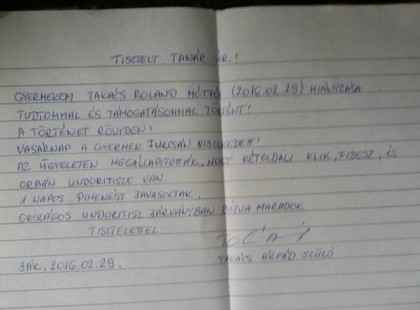 TISZTELT TANÁR ÚR!
GYERMEKEM TAKÁCS ROLAND HÉTFŐI (2016.02.29) HIÁNYZÁSA
TUDTOMMAL ÉS TÁMOGATÁSOMMAL TÖRTÉNT!
A TÖRTÉNET RÖVIDEN:
VASÁRNAP A GYERMEK FURCSÁN VISELKEDETT!
AZ ÜGYELETEN MEGÁLLAPÍTOTTÁK, HOGY KÉTOLDALI KLIK, FIDESZ, ÉS
ORBÁN UNDORITISZE VAN.
1 NAPOS PIHENÉST JAVASOLTAK.
ORSZÁGOS UNDORITISZ JÁRVÁNYBAN BÍZVA MARADOK
TISZTELETTEL
ZÁR, 2016.02.29.
TAKÁCS ÁRPÁD SZÜLŐ